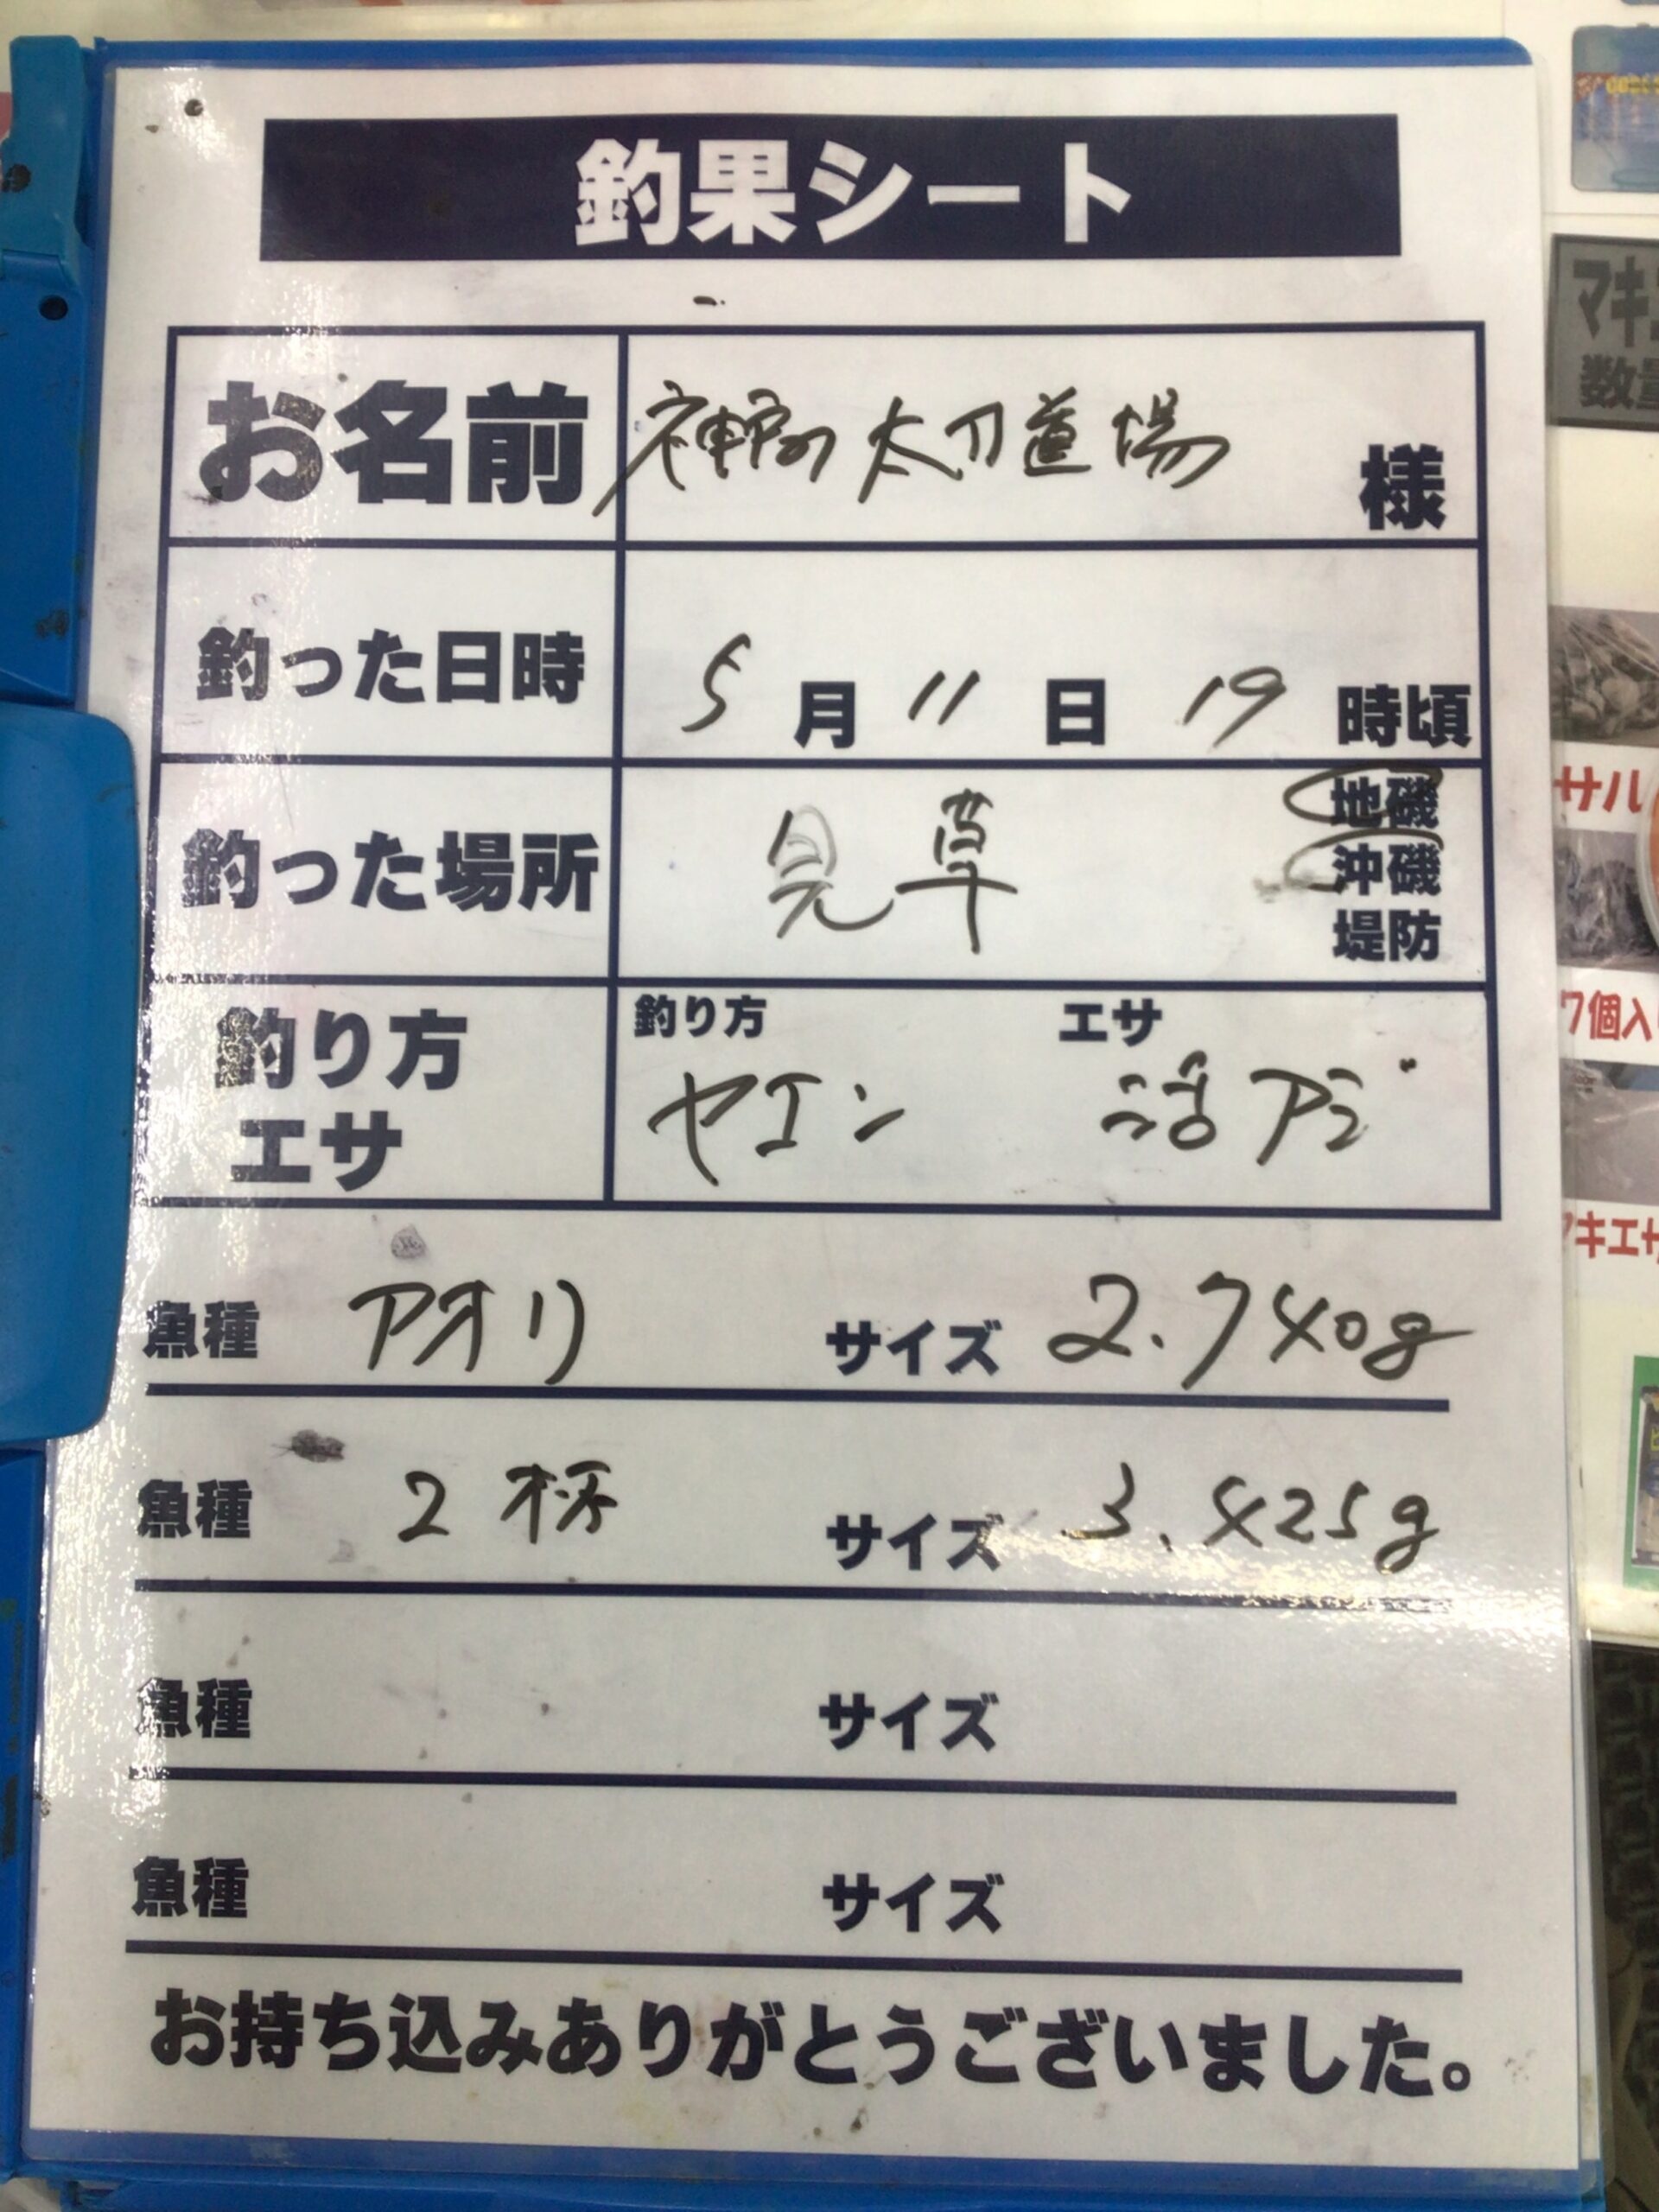 釣果シート
お名前 神戸の太刀道場 様
釣った日時 5月11日19時頃
釣った場所 見草 地磯
沖磯
堤防
釣り方 エサ
釣り方
エサ
ヤエン 活アジ
魚種 アオリ サイズ 2.740g
魚種 2杯 サイズ 3.425g
魚種 サイズ
魚種 サイズ
お持ち込みありがとうございました。
マキ
数量
サル
7個入
マキエサ